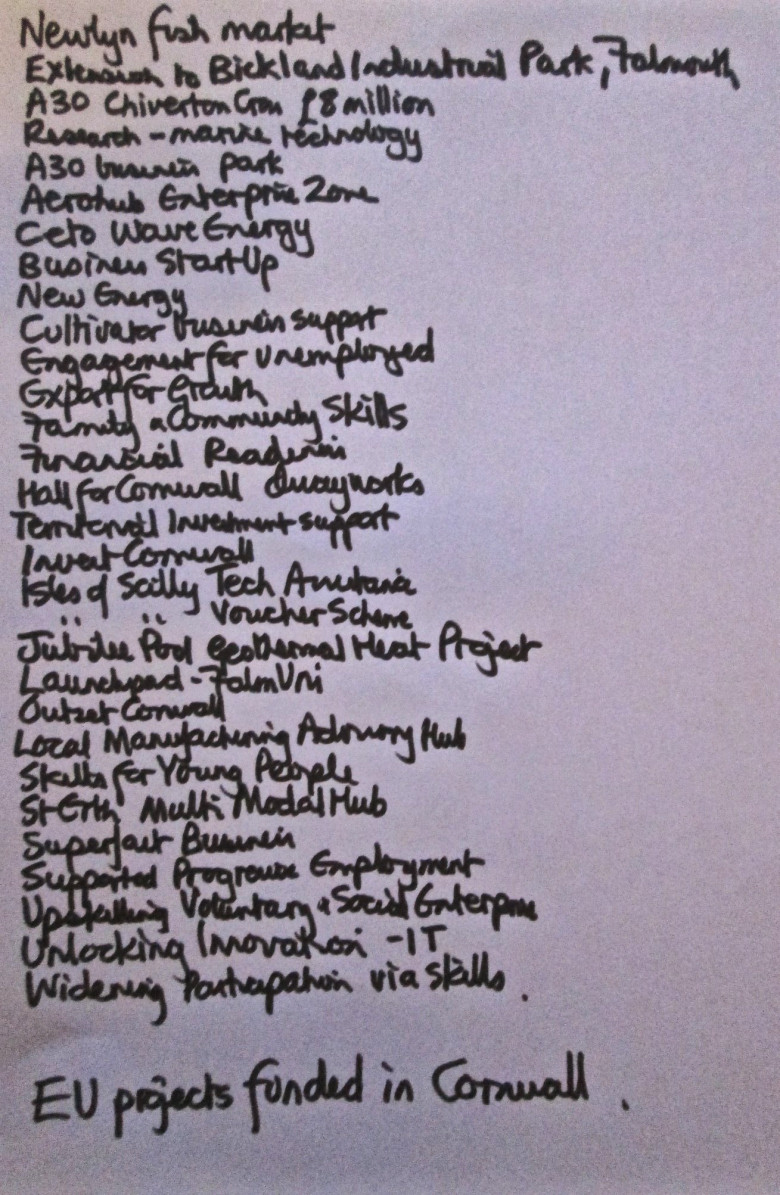 Newlyn fish market
Extension to Bickland Industrial Park, Falmouth
A30 Chiverton Cross £8 million
Research - marine technology
A30 business park
Aerohub Enterprise Zone
Ceto Wave Energy
Business Start-Up
New Energy
Cultivator business support
Engagement for unemployed
Export for Growth
Family & Community Skills
Financial Readiness
Hall for Cornwall Quayworks
Territorial Investment support
Invest Cornwall
Isles of Scilly Tech Assistance
" " Voucher Scheme
Jubilee Pool Geothermal Heat Project
Launchpad - Falm Uni
Outset Cornwall
Local Manufacturing Advisory Hub
Skills for Young People
St Erth Multi Modal Hub
Superfast Business
Supported Progressive Employment
Upskilling Voluntary & Social Enterprise
Unlocking Innovation - IT
Widening Participation via skills.
EU projects funded in Cornwall.